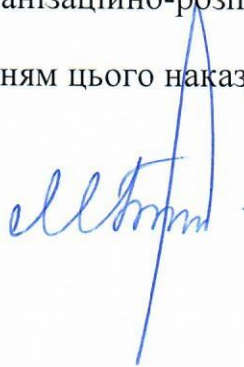 анізаційно-розп
ням цього наказ